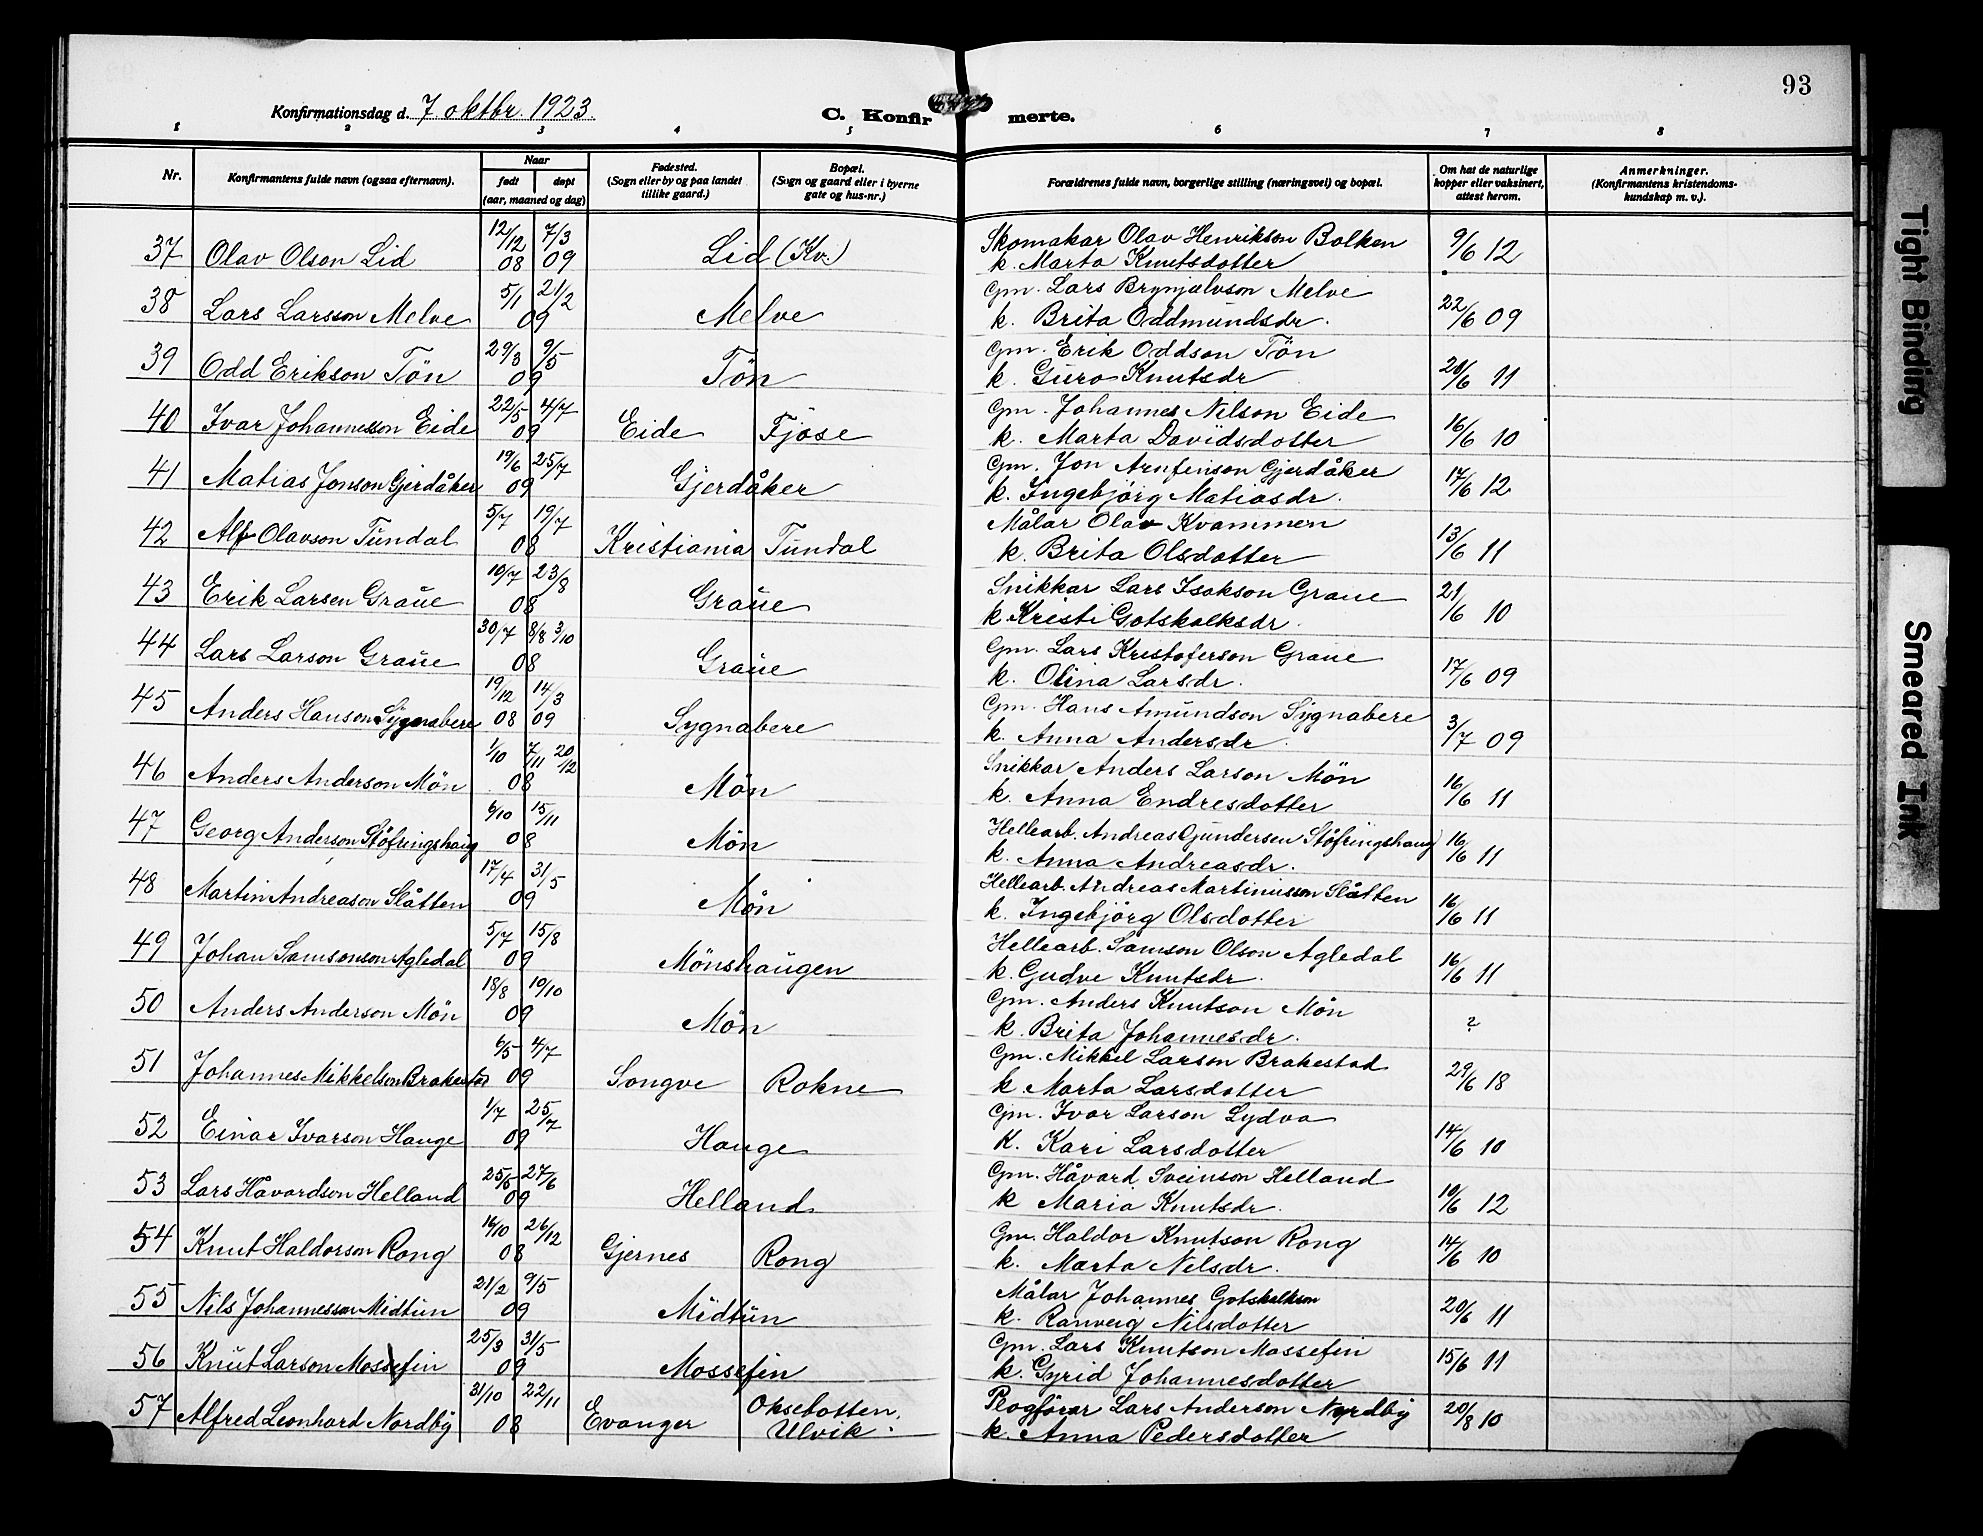 93
Konfirmationsdag d. 7. oktbr. 1923.
C. Konfirmerte.
1 2 3 4 5 6 7 8
Nr. Konfirmantens fulde navn (ogsaa efternavn). Naar født døpt (aar, maaned og dag) Fødested. (Sogn eller by og paa landet tillike gaard.) Bopæl. (Sogn og gaard eller i byerne gate og hus-nr.) Forældrenes fulde navn, borgerlige stilling (næringsvei) og bopæl. Om hat de naturlige kopper eller vaksinert, attest herom. Anmerkninger. (Konfirmantens kristendomskundskap m. v.).
37 Olav Olson Lid 12/12 08 7/3 09 Lid (Kv.) Skomakar Olav Henrikson Bolken 9/6 12
k. Marta Knutsdotter
38 Lars Larsson Melve 5/1 21/2 09 Melve Gm. Lars Brynjulvson Melve 22/6 09
k. Brita Oddmundsdr.
39 Odd Erikson Tön 29/3 9/5 09 Tön Gm. Erik Oddson Tön 20/6 11
k. Guro Knutsdr
40 Ivar Johannesson Eide 22/5 4/7 09 Eide Fjose Gm. Johannes Nilson Eide 16/6 10
k. Marta Davidsdotter
41 Matias Jonson Gjerdåker 19/6 25/7 09 Gjerdåker Gm. Jon Arnfinson Gjerdåker 17/6 12
k. Ingebjörg Matiasdr.
42 Alf Olavson Tundal 5/7 19/7 08 Kristiania Tundal Målar Olav Kvammen 13/6 11
k. Brita Olsdotter
43 Erik Larsen Graue 10/7 23/8 08 Graue Snikkar Lars Isakson Graue 21/6 10
k Kristi Gotskalksdr.
44 Lars Larson Graue 30/7 8/8 3/10 08 Graue Gm. Lars Kristoferson Graue 17/6 09
k. Olina Larsdr.
45 Anders Hanson Sygnabere 19/12 08 14/3 09 Sygnabere Gm. Hans Amundson Sygnabere 3/7 09
k. Anna Andersdr.
46 Anders Anderson Mön 1/10 7/11 20/12 08 Mön Snikkar Anders Larson Mön 16/6 11
k. Anna Endresdotter
47 Georg Anderson Stöfringshaug 6/10 15/11 08 Mön Hellearb. Andreas Gundersen Stöfringshaug 16/6 11
k. Anna Andreasdr.
48 Martin Andreason Slåtten 17/4 31/5 09 Mön Hellearb. Andreas Martinusson Slåtten 16/6 11
k. Ingebjörg Olsdotter
49 Johan Samsonson Agledal 5/7 15/8 09 Mönshaugen Hellearb. Samson Olson Agledal 16/6 11
k. Gudve Knutsdr.
50 Anders Anderson Mön 18/8 10/10 09 Mön Gm. Anders Knutson Mön ?
k. Brita Johannesdr.
51 Johannes Mikkelson Brakestad 6/5 4/7 09 Songve Rokne Gm. Mikkel Larson Brakestad 29/6 18
k. Marta Larsdotter
52 Einar Ivarson Hauge 1/7 25/7 09 Hauge Gm. Ivar Larson Lydva 14/6 10
K. Kari Larsdotter
53 Lars Håvardson Helland 25/5 27/6 09 Helland Gm. Håvard Sveinson Helland 10/6 12
k Maria Knutsdr.
54 Knut Haldorson Rong 14/10 26/12 08 Gjernes Rong Gm. Haldor Knutson Rong 14/6 10
k. Marta Nilsdr.
55 Nils Johannesson Midtun 21/2 9/5 09 Midtun Målar Johannes Gotskalkson 20/6 11
k. Ranveig Nilsdotter
56 Knut Larson Mossefin 25/3 31/5 09 Mossefin Gm. Lars Knutson Mossefin 15/6 11
k. Gyrid Johannesdotter
57 Alfred Leonhard Nordby 31/10 22/11 08 Evanger Oksebotten, Ulvik. Rogförar Lars Anderson Nordby 20/8 10
k. Anna Pedersdotter
Tight Binding
Smeared Ink